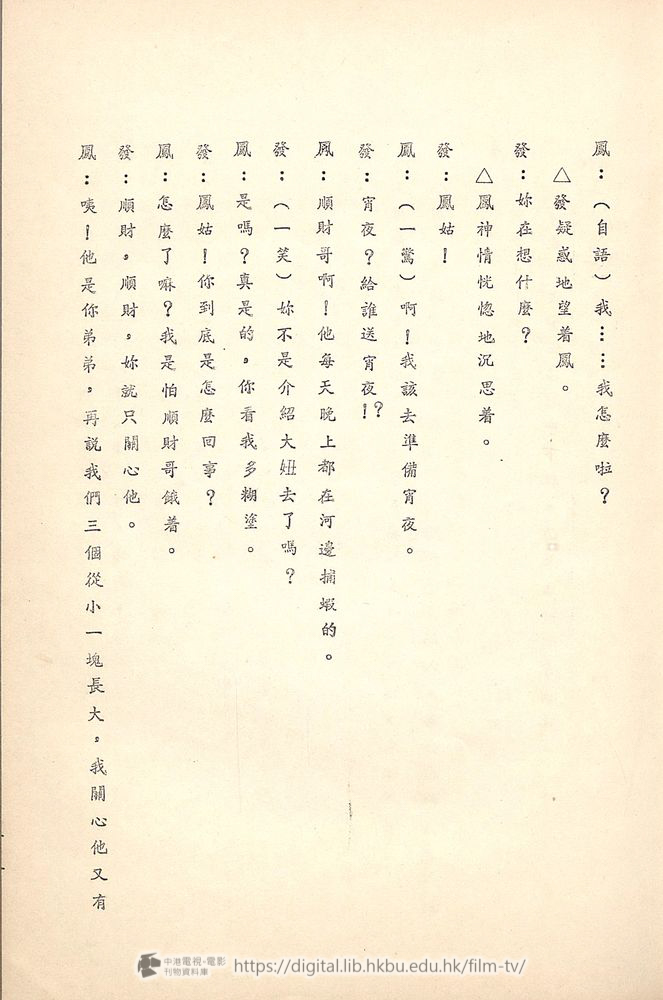 鳳：（自語）我……我怎麼啦？
△發疑惑地望着鳳。
發：妳在想什麼？
△鳳神情恍惚地沉思着。
發：鳳姑！
鳳：（一驚）啊！我該去準備宵夜。
發：宵夜？給誰送宵夜！？
鳳：順財哥啊！他每天晚上都在河邊捕蝦的。
發：（一笑）妳不是介紹大妞去了嗎？
鳳：是嗎？真是的，你看我多糊塗。
發：鳳姑！你到底是怎麼回事？
鳳：怎麼了嘛？我是怕順財哥餓着。
發：順財，順財，妳就只關心他。
鳳：咦！他是你弟弟，再説我們三個從小一塊長大，我關心他又有
中港電視·電影
刊物資料庫
https://digital.lib.hkbu.edu.hk/film-tv/